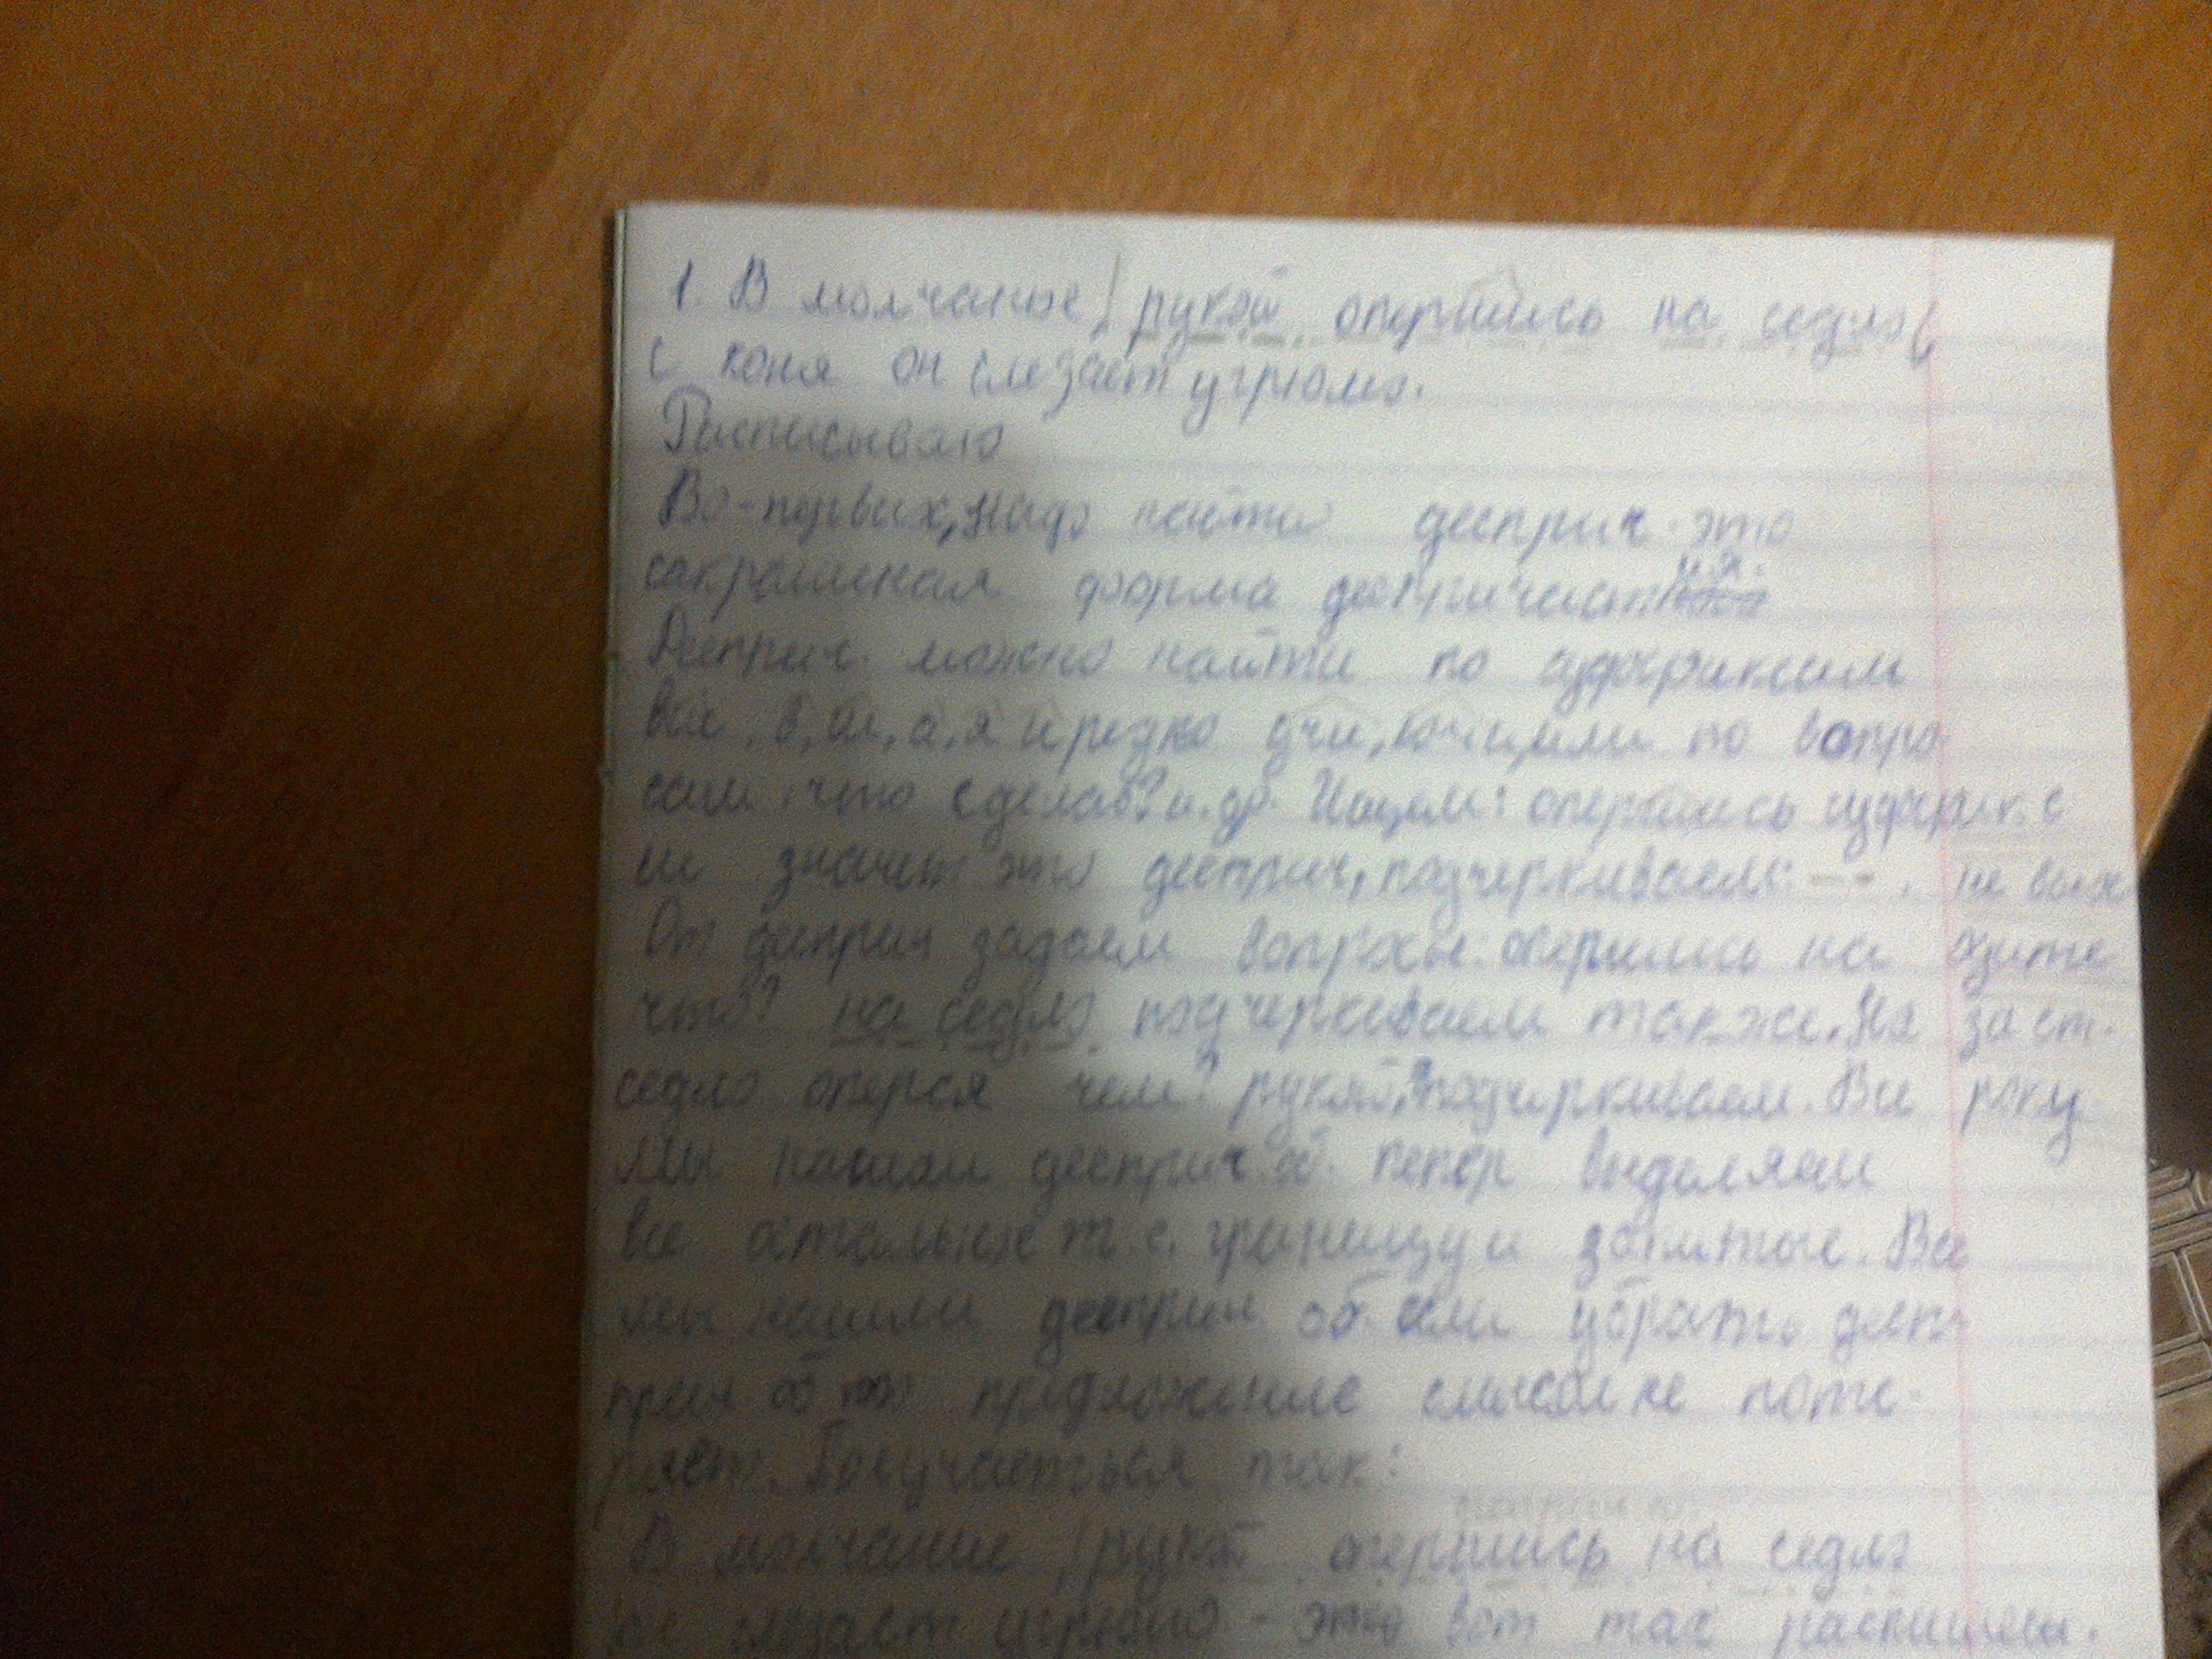 1. В молчанье, рукой опершись на седло,
с коня он слезает угрюмо.
Расписываю
Во-первых, надо найти дееприч. это
сокращеная форма деепричастия.
Дееприч. можно найти по суффиксам
в, ш, а, я и редко учи, ючи, или по вопро
сам: что сделав? и. др. Ищем: опершись суффикс с
ш значит это дееприч, подчеркиваем: –·–·, не выхо
От дееприч задаем вопросы. опершись на
что? на седло подчеркиваем также. На за ст.
седло оперся чем? рукой, подчеркиваем. Все
Мы нашли дееприч. об. теперь выделяем
все остальное т. е. границу и запятые. Все
мы нашли дееприч об. если убрать дееп
прич об то предложение смысл не поте-
ряет. Получаеться так:
В молчание рукой опершись на седло
слезает угрюмо - это вот так распишем.